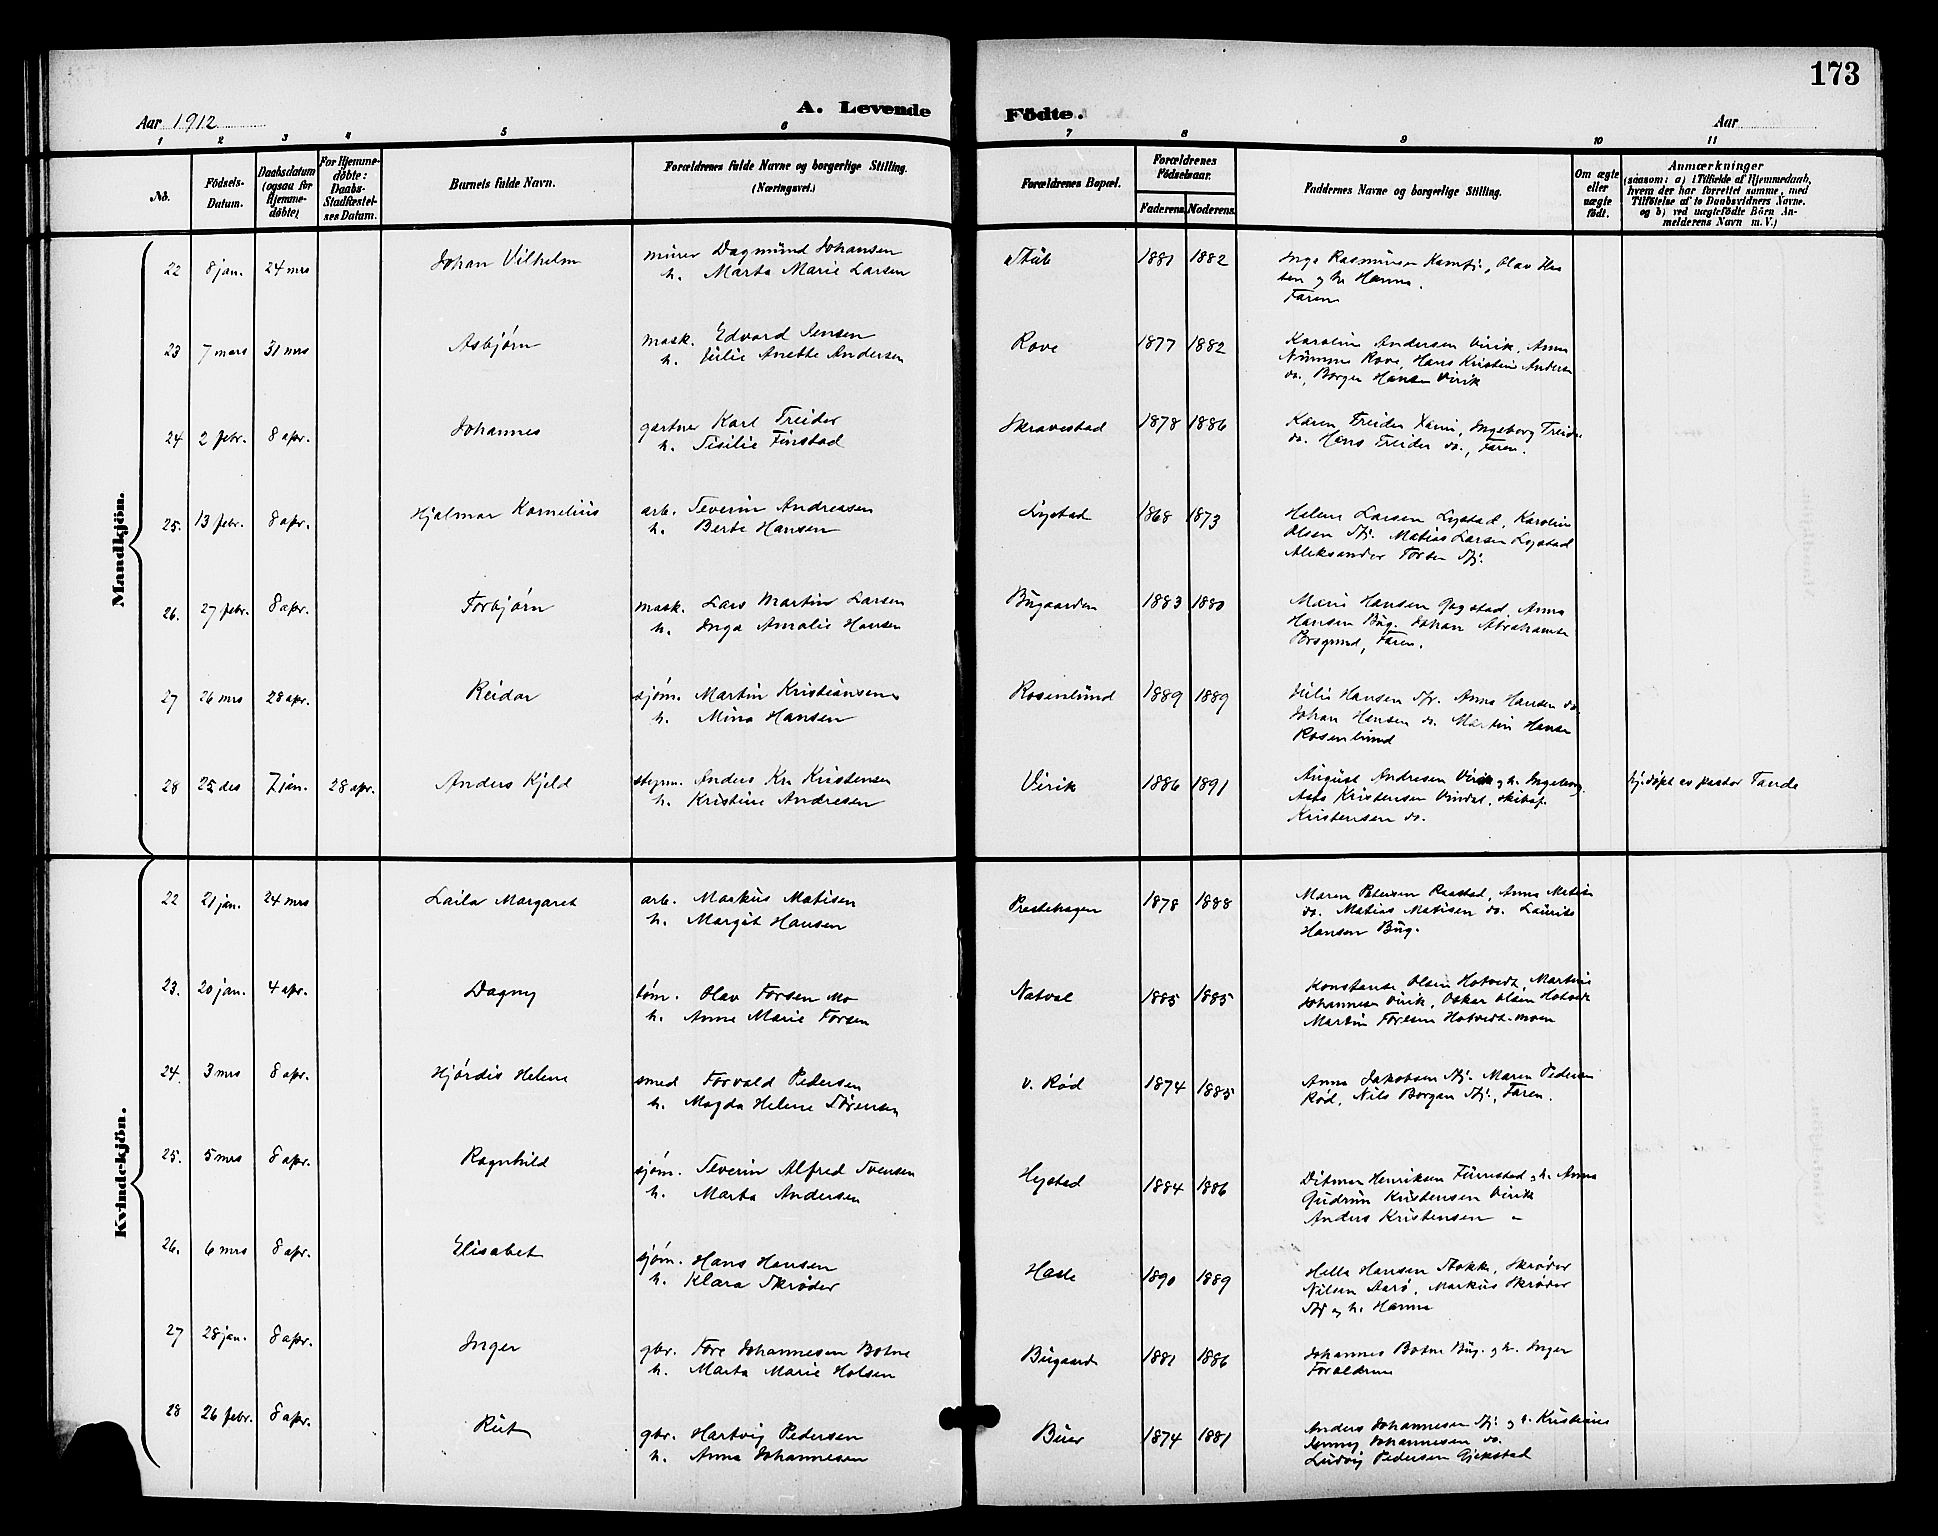 173
Aar 1912
A. Levende Födte.
Aar
1 2 3 4 5 6 7 8 9 10 11
No.
Födsels-Datum.
Daabsdatum (ogsaa for Hjemmedøbte)
For Hjemmedøbte: Daabs-Stadfæstelses Datum.
Barnets fulde Navn.
Forældrenes fulde Navne og borgerlige Stilling. (Næringsvei.)
Forældrenes Bopæl.
Forældrenes Födselsaar.
Faderens. Moderens.
Faddernes Navne og borgerlige Stilling.
Om ægte eller uægte født.
Anmærkninger
(saasom: a) i Tilfælde af Hjemmedaab, hvem der har forrettet samme, med Tilføielse af to Daabsvidners Navne. og b) ved uægtefödte Börn Anmelderens Navn m. V.)
Mandkjön.
22 8 jan. 24 mrs Johan Vilhelm murer Dagmund Johansen Stub 1881 1882 Inga Rasmussen Kamfj., Olav Han
h. Marta Marie Larsen
sen og h. Hanna.
Faren
23 7 mars 31 mrs Asbjørn mask. Edvard Jensen Rove 1877 1882 Karoline Andersen Virik, Anna
h. Julie Anette Andersen
Numme Rove, Hans Kristian Andersen
do., Borger Hansen Virik
24 2 febr. 8 apr. Johannes gartner Karl Treider Skravestad 1878 1886 Karen Treider, Ingeborg Treider
h. Sisilie Finstad
do. Hans Treider do., Faren.
25. 13 febr. 8 apr. Hjalmar Kornelius arb. Severin Andreassen Lystad 1868 1873 Helene Larsen Lystad, Karoline
h. Berte Hansen
Olsen Sfj. Matias Larsen Lystad
Aleksander Torsen Sfj.
26. 27 febr. 8 apr. Torbjørn mask. Lars Martin Larsen Bugaarden 1883 1880 Marie Hansen Gogstad, Anna
h. Inga Amalie Hansen
Hansen Bug. Johan Abrahamsen
Porsgrund, Faren.
27 26 mrs 28 apr. Reidar sjøm. Martin Kristiansen Rosenlund 1889 1889 Julie Hansen Sfj. Anna Hansen do.
h. Mina Hansen
Johan Hansen do. Martin Hansen
Rosenlund
28 25 des 7 jan. 28 apr. Anders Kjeld styrm. Anders Kr. Kristensen Virik 1886 1891 August Andresen Virik og h. Ingeborg. hj.døpt av pastor Tande
h. Kristine Andresen
Asta Kristensen Vindal, skibsf.
Kristensen do.
Kvindekjön.
22 21 jan. 24 mrs Laila Margaret arb. Markus Matisen Prestehagen 1878 1888 Maren Petersen Raastad, Anna Matisen
h. Margit Hansen
do. Matias Matisen do. Laurits
Hansen Bug.
23. 20 jan. 4 apr. Dagny tøm. Olav Torsen Mo Natval 1885 1885 Konstanse Olsen Hotvedt, Martine
h. Anne Marie Torsen
Johannesen Virik, Oskar Olsen Hotvedt
Martin Torsen Hotvedt-moen
24. 3 mrs 8 apr. Hjørdis Helene smed Torvald Pedersen v. Rød 1874 1885 Anna Jakobsen Sfj. Maren Pedersen
h. Magda Helene Sørensen
Rød, Nils Borgan Sfj., Faren.
25. 5 mrs 8 apr. Ragnhild sjøm. Severin Alfred Svensen Hystad 1884 1886 Ditmar Henriksen Furustad og h. Anna
h. Marta Andersen
Gudrun Kristensen Virik
Anders Kristensen "
26. 6 mrs 8 apr. Elisabet sjøm. Hans Hansen Hasle 1890 1889 Helle Hansen Stokke, Skrøder
h. Klara Skrøder
Nilsen Aarø, Markus Skrøder
Sfj og h. Hanna
27 28 jan. 8 apr. Inger gbr. Tore Johannesen Botne Bugaard 1881 1886 Johannes Botne Bug. og h. Inger
h. Marta Marie Holsen
Foraldrene
28 26 febr. 8 apr. Rut gbr. Hartvig Pedersen Buer 1874 1881 Anders Johannesen Sfj. og h. Kristiane
h. Anna Johannesen
Jenny Johannesen do.
Ludvig Pedersen Gjekstad